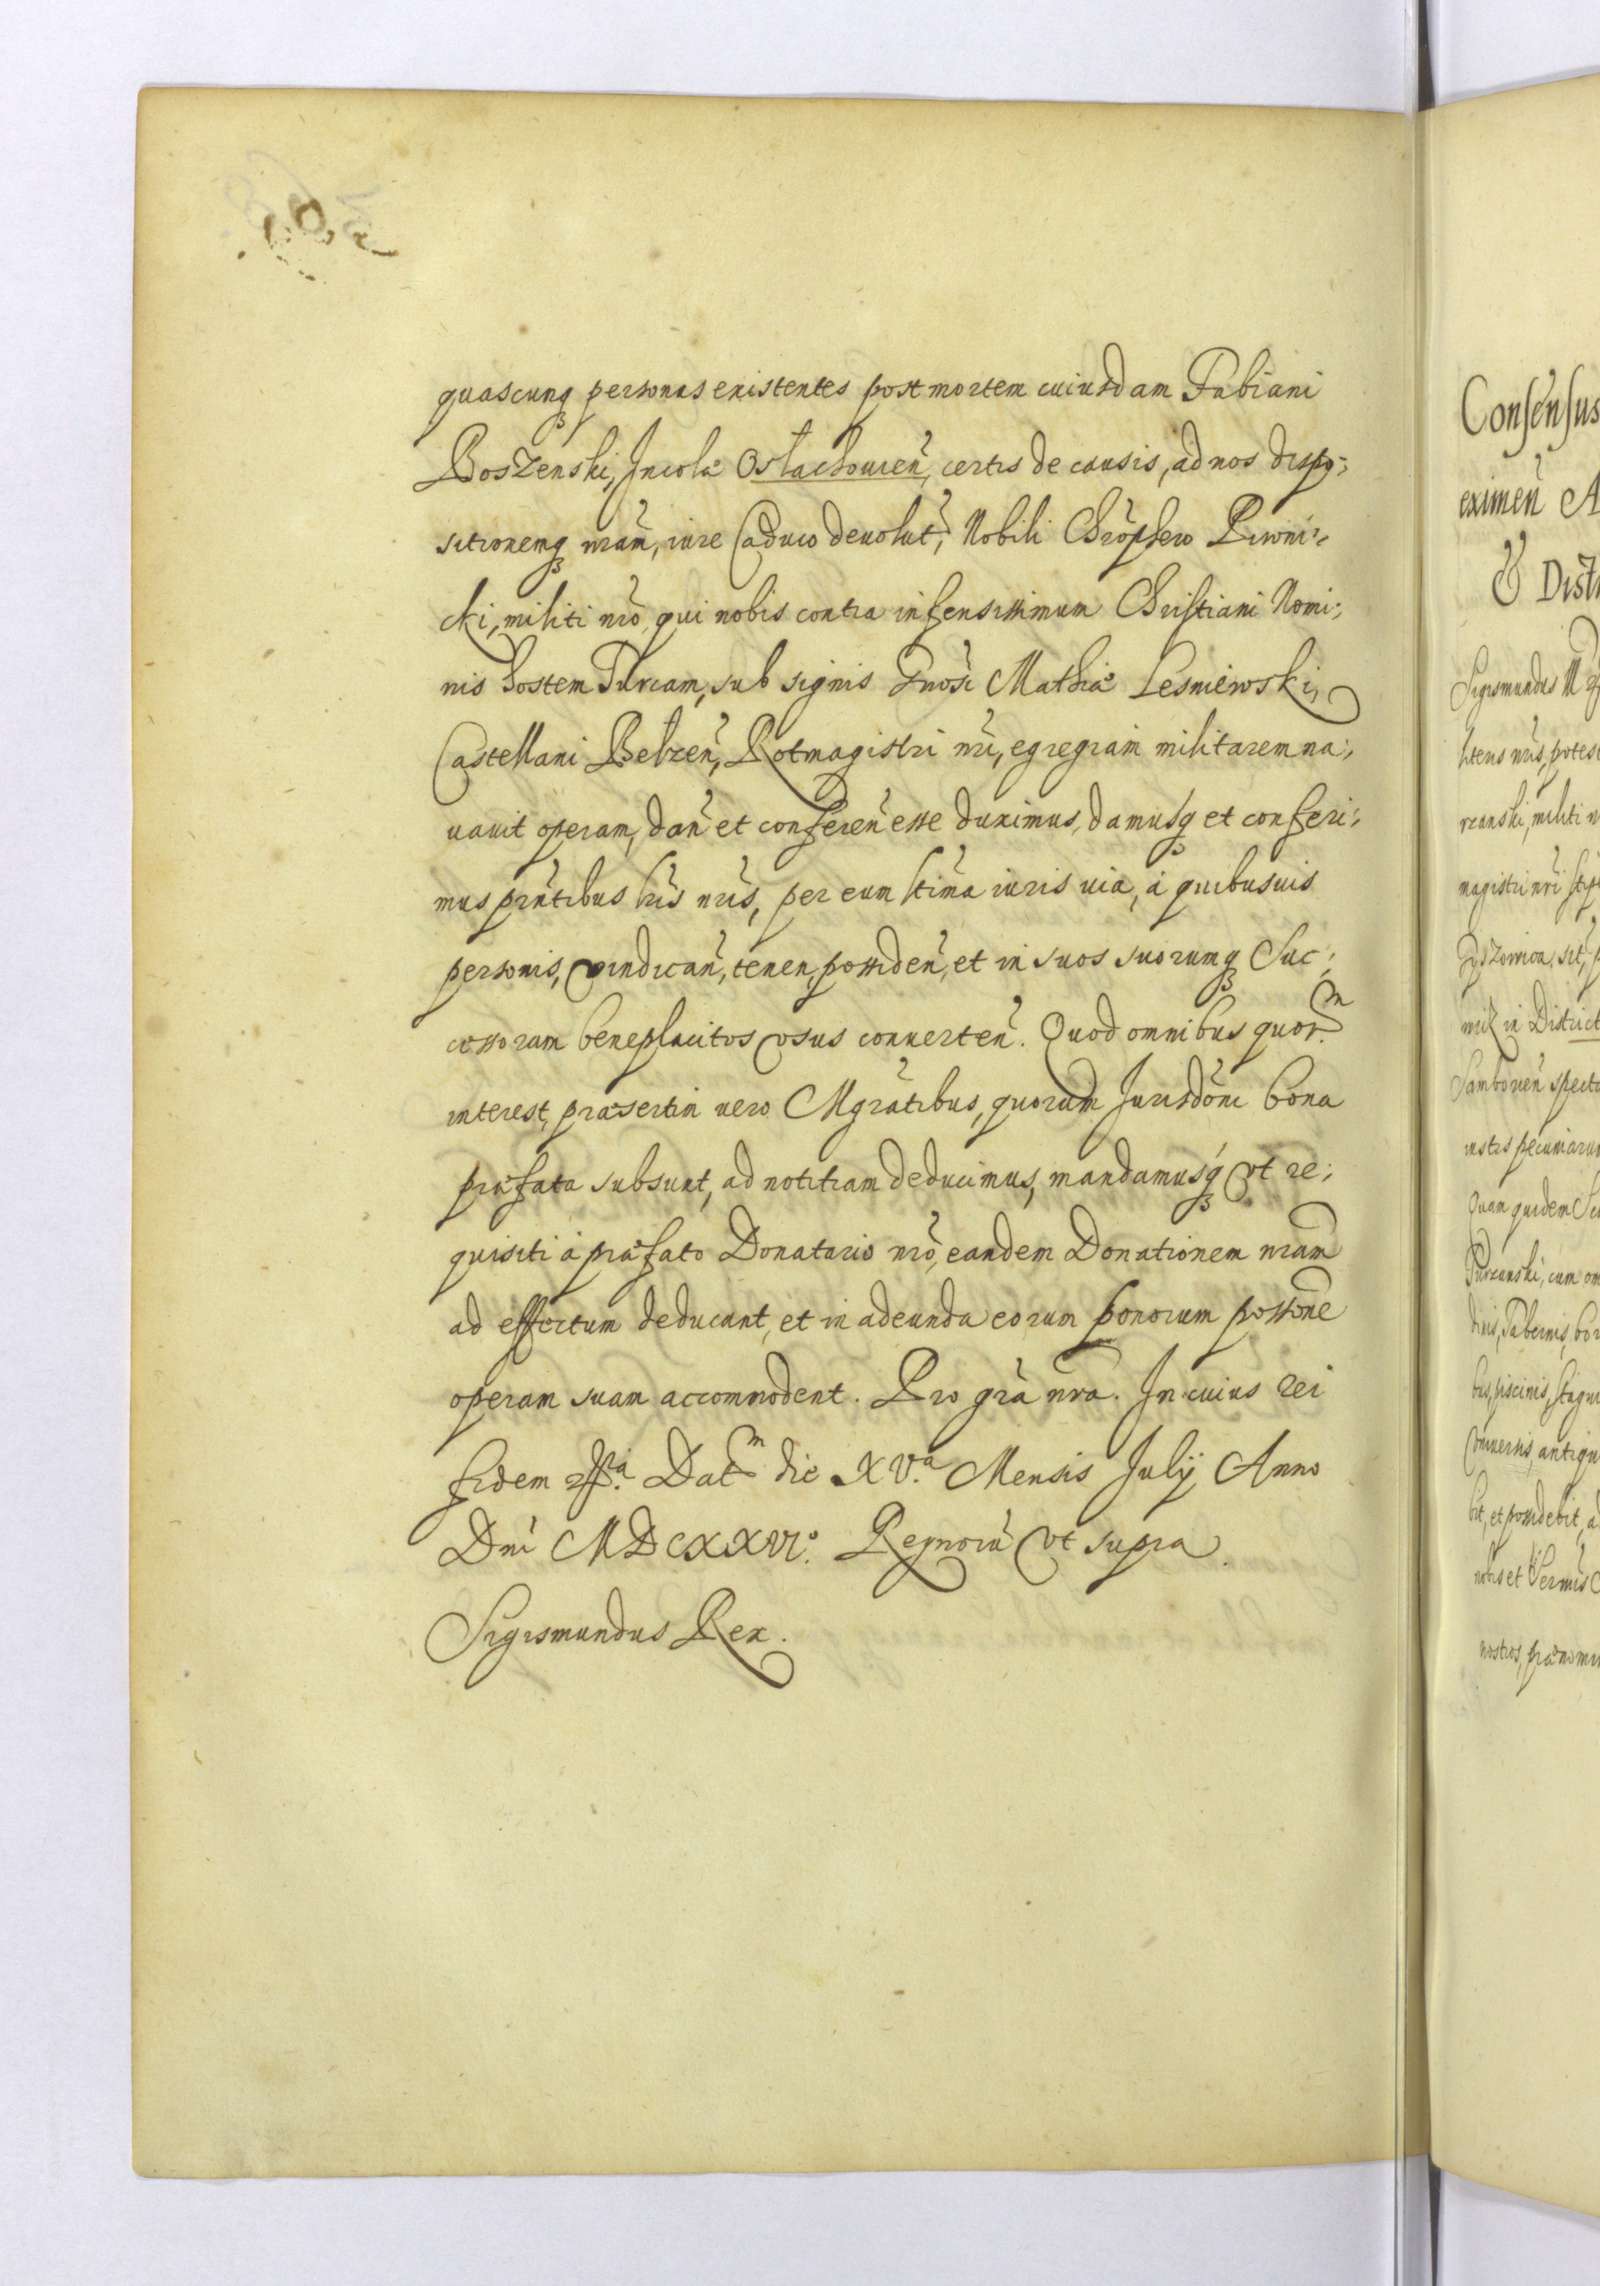 quascunq personas existentes post mortem cuiusdam Fabiani
Boszenski, Incolæ Ostachouien, certis de causis, ad nos dispo:
sitionemq nram, iure Caduco deuolut, Nobili Chrophero Piwni:
cki, militi nro, qui nobis contra infensissimum Christiani Nomi:
nis hostem Turcam, sub signis Gnosi Mathiæ Lesniewski,
Castellani Belzen, Rotmagistri nri, egregiam militarem na:
uauit operam, dan et conferen esse duximus, damusq et conferi:
mus pntibus lris nris, per eum ltima iuris uia, à quibusuis
personis, vindican, tenen, possiden, et in suos suorumq Suc:
cessorum beneplacitos vsus conuerten. Quod omnibus quor.m
interest, præsertim uero Mgratibus, quorum Jurisdoni bona
præfata subsunt, ad notitiam deducimus, mandamusq vt re:
quisiti à præfato Donatario nro, eandem Donationem nram
ad effectum deducant, et in adeunda eorum bonorum possone
operam suam accommodent. Pro gra nra. In cuius rei
fidem Dat.m die XV.a Mensis Julij Anno
Dni MDCXXVI.o Regnoru vt supra.
Sigismundus Rex.
Consensus
eximen A
& Distr
Sigismundus
literis nris, potest
magistri nri
in District
Samborien specta
iustis pecuniarum
Quam quidem
Turzanski, cum om
bus, piscinis, stagni
antiqu
bit, et possidebit, a
nobis et Sermis
nostros, prænomi